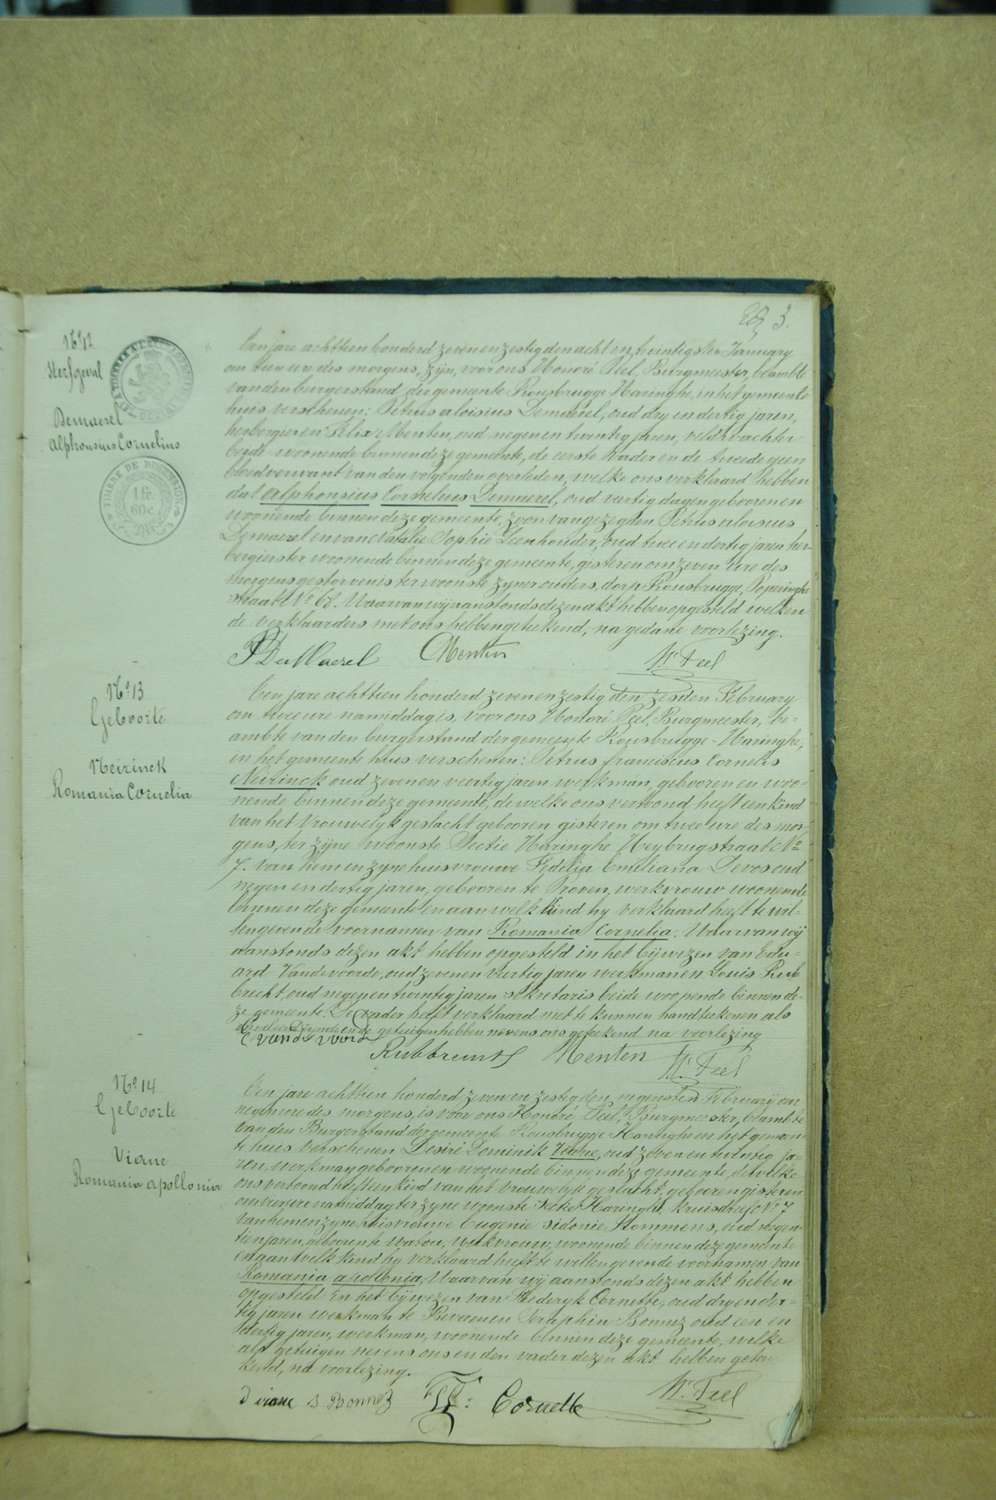 3.
N° 12
Sterfgeval
Demaerel
Alphonsius Cornelius
TIMBRE DE DIMENSION
1 fr.
60 c.
Een jare achttien honderd zeven en zestig den acht en twintigsten January
om twee ure des morgens, zijn, voor ons Honoré Peel, Burgmeester, beambte
van den burgerstand der gemeente Rousbrugge Haringhe, in het gemeente
huis verschenen: Petrus aloisius Demaerel, oud dry en dertig jaren,
herbergier en Felix Menten, oud negen en twintig jaren, veldwachter
beide woonende binnen deze gemeente, de eerste vader en de tweede geen
bloedverwant van den volgenden overleden, welke ons verklaard hebben
dat alphonsius Cornelius Demaerel, oud veertig dagen geboren en
woonende binnen deze gemeente, zoon van gezegden Petrus aloisius
Demaerel en van Natalie Sophie Leenhonder, oud twee en dertig jaren her-
bergierster woonende binnen deze gemeente, gisteren om zeven ure des
morgens gestorven is ter woonste zyner ouders, dorp Rousbrugge, Poperinghe
straat N° 68. Waarvan wij aanstonds dezen akt hebben opgesteld welken
de verklaarders met ons hebben geteekend, na gedane voorlezing.
P DeMaerel Menten Hré Peel
N° 13
Geboorte
Neirinck
Romania Cornelia
Een jare achttien honderd zeven en zestig den zesden February
om twee ure namiddag is, voor ons Honoré Peel, Burgmeester, be-
ambte van den burgerstand der gemeente Rousbrugge-Haringhe,
in het gemeente huis verschenen: Petrus franciscus Cornelis
Neirinck oud zeven en veertig jaren werkman, geboren en woo-
nende binnen deze gemeente, dewelke ons vertoond heeft een kind
van het vrouwelyk geslacht geboren gisteren om twee ure des mor-
gens, ter zijne woonste Sectie Haringhe Heybrugstraat N°
7. van hem en zyne huisvrouwe Fydelia Emiliana Devos oud
negen en dertig jaren, gebooren te Proven, werkvrouw woonende
binnen deze gemeente en aan welk kind hy verklaard heeft te wil-
len geven de voornamen van Romania Cornelia. Waarvan wij
aanstonds dezen akt hebben opgesteld in het bijwezen van Edu-
ard Vandevoorde, oud zeven en veertig jaren werkman en Louis Rub
brecht, oud negen en twintig jaren sekretaris beide woonende binnen de-
ze gemeente. De vader heeft verklaard niet te kunnen handteekenen als
getuigen hebben nevens ons geteekend na voorlezing
E vande voorde
Rubbrecht Menten Hré Peel
N° 14
Geboorte
Viane
Romania apollonia
Een jare achttien honderd zeven en zestig den negensten February om
negen ure des morgens, is voor ons Honoré Peel, Burgmeester, beambte
van den Burgerstand der gemeente Rousbrugge Haringhe en het gemeen-
te huis verschenen Desiré Dominik Viane, oud zeven en twintig ja-
ren, werkman geboren en woonende binnen deze gemeente, dewelke
ons vertoond heeft een kind van het vrouwelyk geslacht, geboren gisteren
namiddag ter zyne woonste Sectie Haringhe, kruisstraat N° 7
van hem en zyne huisvrouwe Eugenie Sidonie Hommens, oud negen-
tien jaren, geboren te watou, werkvrouw, woonende binnen deze gemeente
en aan welk kind hy verklaard heeft te willen geven de voornamen van
Romania apollonia, Waarvan wij aanstonds dezen akt hebben
opgesteld in het bijwezen van Frederyk Cornette, oud dry en der-
tig jaren werkman te Beveren en Seraphin Bonnez oud een en
dertig jaren, werkman, woonende binnen deze gemeente, welke
als getuigen nevens ons en den vader dezen akt hebben getee
kend, na voorlezing.
D viane S Bonnez Fr: Cornette Hré Peel